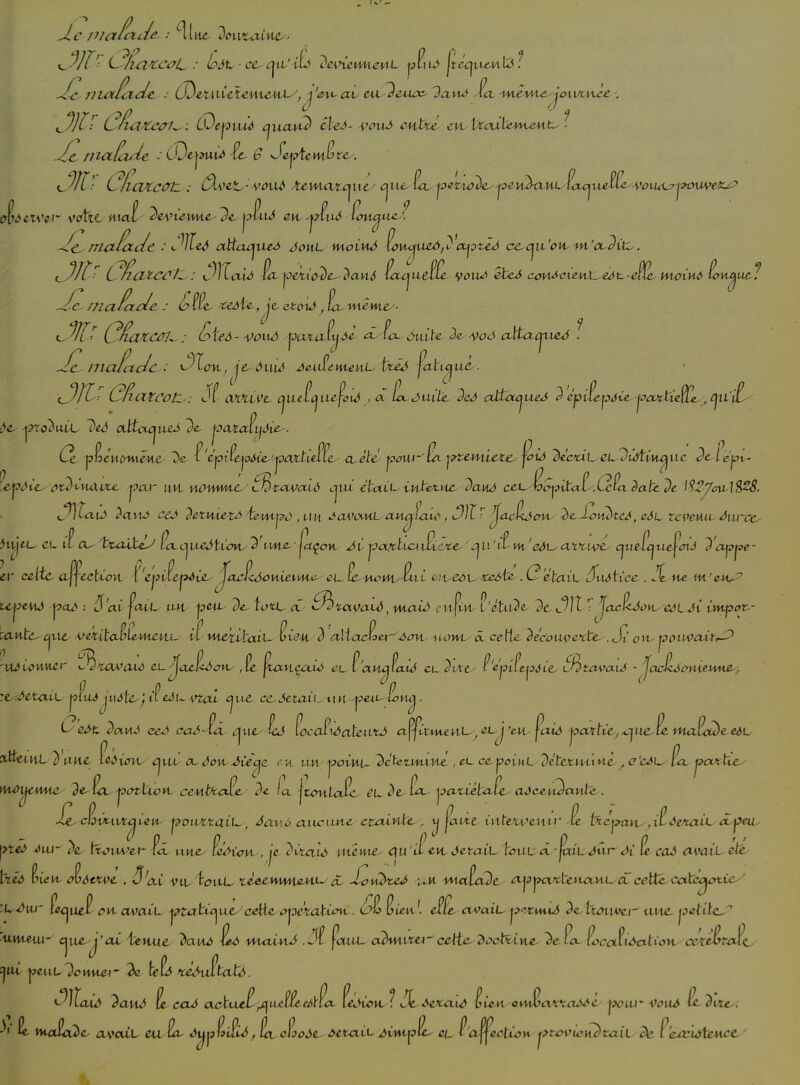 Le malade : Une douzaine.
Mr Charcot : Est-ce qu'ils deviennent plus fréquents ?
Le malade : Dernièrement, j'en ai eu deux dans la même journée.
Mr Charcot : Depuis quand êtes-vous entré en traitement ?
Le malade : Depuis le 6 Septembre.
Mr Charcot : Avez-vous remarqué que la période pendant laquelle vous pouvez
observer votre mal devienne de plus en plus longue ?
Le malade : Mes attaques sont moins longues, d'après ce qu'on m'a dit.
Mr Charcot : Mais la période dans laquelle vous êtes conscient est-elle moins longue ?
Le malade : Elle reste, je crois, la même.
Mr Charcot : Etes-vous paralysé à la suite de vos attaques ?
Le malade : Non, je suis seulement très fatigué.
Mr Charcot : Il arrive quelquefois, à la suite des attaques d'épilepsie partielle, qu'il
se produit des attaques de paralysie.
Ce phénomène de l'épilepsie partielle a été pour la première fois décrit et distingué de l'épi-
lepsie ordinaire par un nommé Bravais qui était interne dans cet hôpital. Cela date de 1827 ou 1828.
Mais dans ces derniers temps, un savant anglais, Mr Jackson de Londres, est revenu sur ce
sujet et il a traité la question d'une façon si particulière qu'il m'est arrivé quelquefois d'appe-
ler cette affection l'épilepsie Jacksonienne et le nom lui en est resté. C'était Justice. Je ne m'en
repens pas : J'ai fait un peu de tort à Bravais, mais enfin l'étude de Mr Jackson est si impor-
tante que véritablement il méritait bien d'attacher son nom à cette découverte. Si on pouvait
fusionner Bravais et Jackson, le français et l'anglais et dire l'épilepsie Bravais-Jacksonienne,
ce serait plus juste ; il est vrai que ce serait un peu long.
C'est dans ces cas-là que les localisateurs affirment, et j'en fais partie, que le malade est
atteint d'une lésion qui a son siège en un point déterminé, et ce point déterminé, c'est la partie
moyenne de la portion centrale de la frontale et de la pariétale ascendante.
Le chirurgien pourrait, sans aucune crainte, y faire intervenir le trépan, il serait à peu
près sur de trouver là une lésion, je dirais même qu'il en serait tout à fait sûr si le cas avait été
très bien observé. J'ai vu tout récemment à Londres un malade appartenant à cette catégorie
et sur lequel on avait pratiqué cette opération. Eh bien ! elle avait permis de trouver une petite
tumeur que j'ai tenue dans les mains. Il faut admirer cette doctrine de la localisation cérébrale
qui peut donner de tels résultats.
Mais dans le cas actuel, quelle est la lésion ? Je serais bien embarrassé pour vous le dire.
Si le malade avait eu la syphilis, la chose serait simple et l'affection proviendrait de l'existence